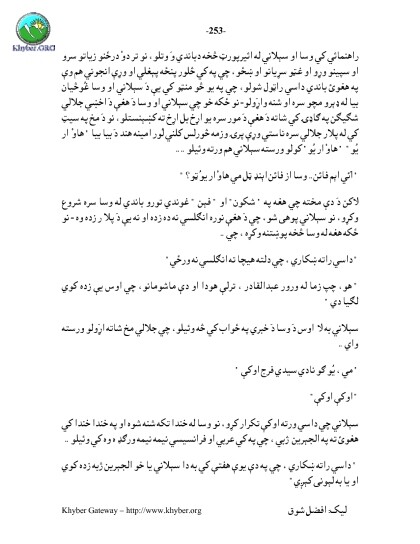 Khyber.ORG
-253-
راهنمائي کي وسا او سبلاني له ائيرپورټ څخه دباندي و وتلو، نو تر دوؤ درځنو زياتو سرو
او سپينو وړو او غټو سړيانو او ښځو، چي په کي څلور پنځه پېغلي او وړې انجوني هم وې
په هغوئ باندي داسي راټول شولو، چي په يو څو منټو کي يې د سبلاني او وسا غوڅيان
بيا له ډېرو مچو سره او شنه واړولو- نو څکه خو چي سبلاني او وسا د هغې د اخښي جلالي
شګېګن په ګاډۍ کي شاته د هغې د مور سره يو اړخ بل اړخ ته کښېنستلو، نو د مخ په سيټ
کي له پلار جلالي سره ناستي وړې پرۍ ورمه څورلس کلني لور امينه هند د بيا بيا " هاؤ ار
يو" " هاؤ ار يو" کولو ورسته سبلاني هم ورته وئيلو ....
" ائي ايم فائن.. وسا از فائن اېنډ ټل مي هاؤ ار يو ټو؟ "
لاکن د دې مخته چي هغه په " شکون" او " فين " غوندي تورو باندي له وسا سره شروع
وکړو، نو سبلاني پوهی شو، چي د هغې نوره انګلسي نه ده زده او نه يې د پلار زده وه- نو
څکه هغه له وسا څخه پوښتنه وکړه، چي ..
" داسي راته ښکاري، چي دلته هيچا ته انګلسي نه ورځي"
" هو، چپ زما له ورور عبدالقادر، ترلې هودا او دې ماشومانو، چي اوس يې زده کوي
لګيا دي "
سبلاني به لا اوس د وسا د خبري په ځواب کي څه وئيلو، چي جلالي مخ شاته اړولو ورسته
واي ..
" مي، يو ګو نادي سيدي فرج اوکې "
" اوکې اوکې "
سبلاني چي داسي ورته اوکې تکرار کړو، نو وسا له خندا تکه شنه شوه او په خندا خندا کي
هغوئ ته په الجبرين ژبي، چي په کي عربي او فرانسيسي نيمه نيمه ورګډه وه کي وئيلو ..
" داسي راته ښکاري، چي په دې يوې هفتې کي به دا سبلاني يا خو الجبرين ژبه زده کوي
او يا به لېونی کېږي "
Khyber Gateway – http://www.khyber.org
ليک: افضل شوق